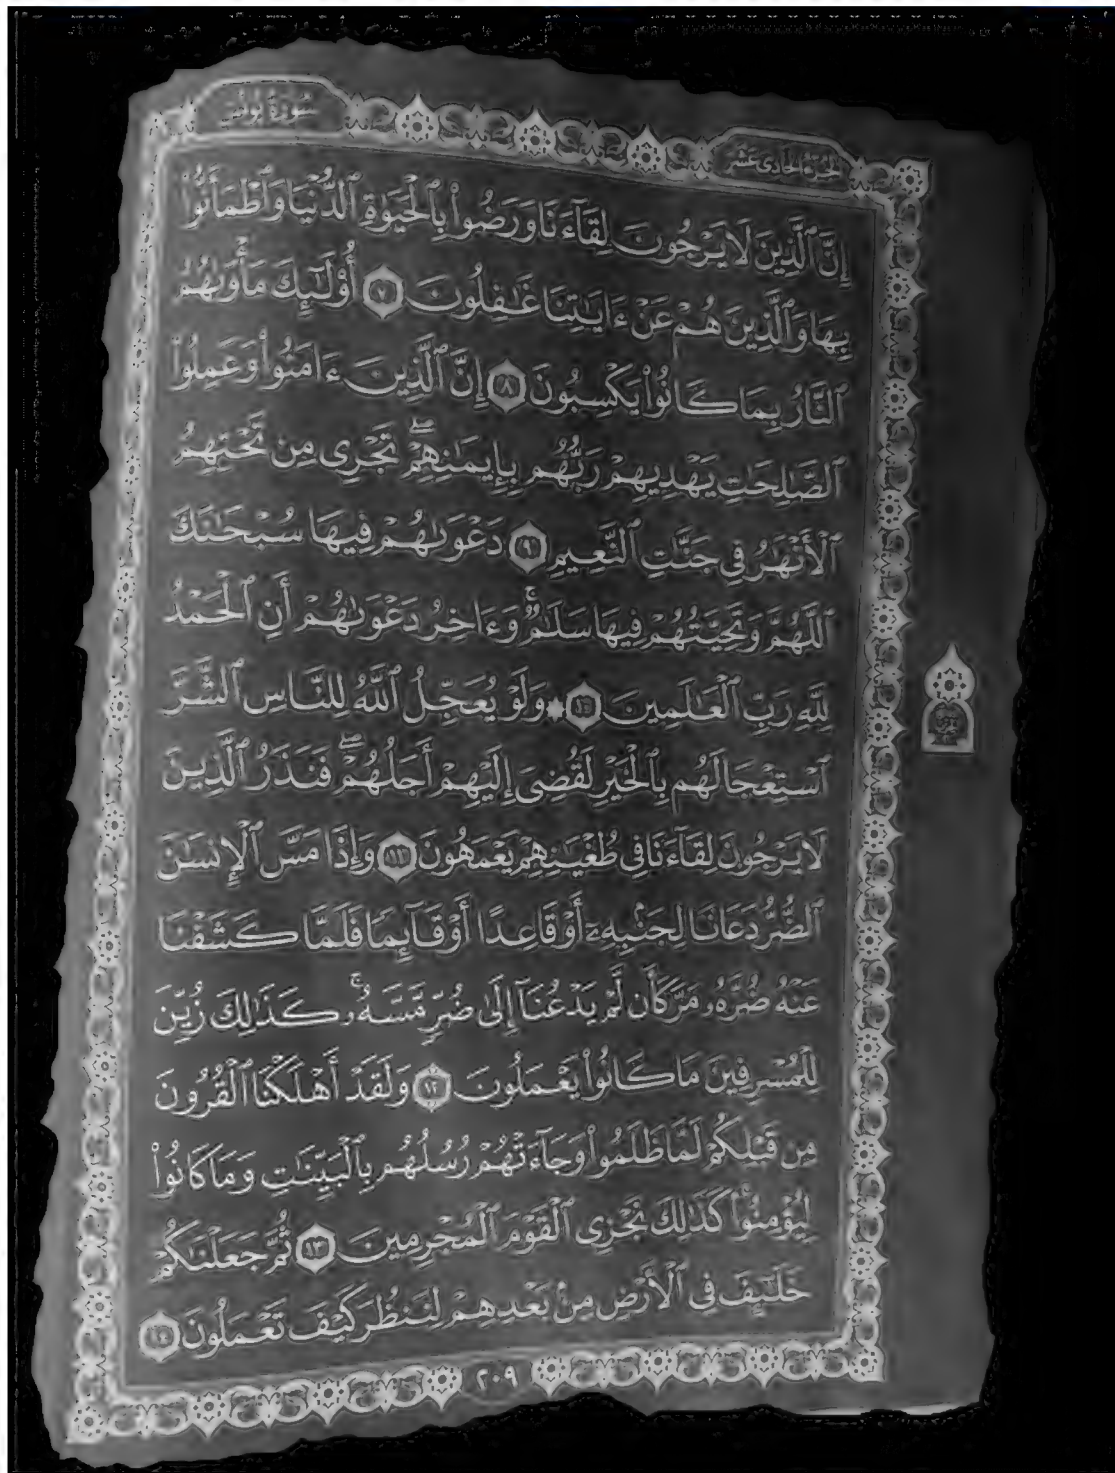 سُورَةُ يُونُسَ
الجُزْءُ الحَادِي عَشَرَ
إِنَّ ٱلَّذِينَ لَا يَرْجُونَ لِقَآءَنَا وَرَضُوا۟ بِٱلْحَيَوٰةِ ٱلدُّنْيَا وَٱطْمَأَنُّوا۟
بِهَا وَٱلَّذِينَ هُمْ عَنْ ءَايَـٰتِنَا غَـٰفِلُونَ ٧ أُو۟لَـٰٓئِكَ مَأْوَىٰهُمُ
ٱلنَّارُ بِمَا كَانُوا۟ يَكْسِبُونَ ٨ إِنَّ ٱلَّذِينَ ءَامَنُوا۟ وَعَمِلُوا۟
ٱلصَّـٰلِحَـٰتِ يَهْدِيهِمْ رَبُّهُم بِإِيمَـٰنِهِمْۖ تَجْرِى مِن تَحْتِهِمُ
ٱلْأَنْهَـٰرُ فِى جَنَّـٰتِ ٱلنَّعِيمِ ٩ دَعْوَىٰهُمْ فِيهَا سُبْحَـٰنَكَ
ٱللَّهُمَّ وَتَحِيَّتُهُمْ فِيهَا سَلَـٰمٌۚ وَءَاخِرُ دَعْوَىٰهُمْ أَنِ ٱلْحَمْدُ
لِلَّهِ رَبِّ ٱلْعَـٰلَمِينَ ١٠ ۞ وَلَوْ يُعَجِّلُ ٱللَّهُ لِلنَّاسِ ٱلشَّرَّ
ٱسْتِعْجَالَهُم بِٱلْخَيْرِ لَقُضِىَ إِلَيْهِمْ أَجَلُهُمْۖ فَنَذَرُ ٱلَّذِينَ
لَا يَرْجُونَ لِقَآءَنَا فِى طُغْيَـٰنِهِمْ يَعْمَهُونَ ١١ وَإِذَا مَسَّ ٱلْإِنسَـٰنَ
ٱلضُّرُّ دَعَانَا لِجَنۢبِهِۦٓ أَوْ قَاعِدًا أَوْ قَآئِمًا فَلَمَّا كَشَفْنَا
عَنْهُ ضُرَّهُۥ مَرَّ كَأَن لَّمْ يَدْعُنَآ إِلَىٰ ضُرٍّ مَّسَّهُۥۚ كَذَٰلِكَ زُيِّنَ
لِلْمُسْرِفِينَ مَا كَانُوا۟ يَعْمَلُونَ ١٢ وَلَقَدْ أَهْلَكْنَا ٱلْقُرُونَ
مِن قَبْلِكُمْ لَمَّا ظَلَمُوا۟ وَجَآءَتْهُمْ رُسُلُهُم بِٱلْبَيِّنَـٰتِ وَمَا كَانُوا۟
لِيُؤْمِنُوا۟ۚ كَذَٰلِكَ نَجْزِى ٱلْقَوْمَ ٱلْمُجْرِمِينَ ١٣ ثُمَّ جَعَلْنَـٰكُمْ
خَلَـٰٓئِفَ فِى ٱلْأَرْضِ مِنۢ بَعْدِهِمْ لِنَنظُرَ كَيْفَ تَعْمَلُونَ ١٤
٢٠٩